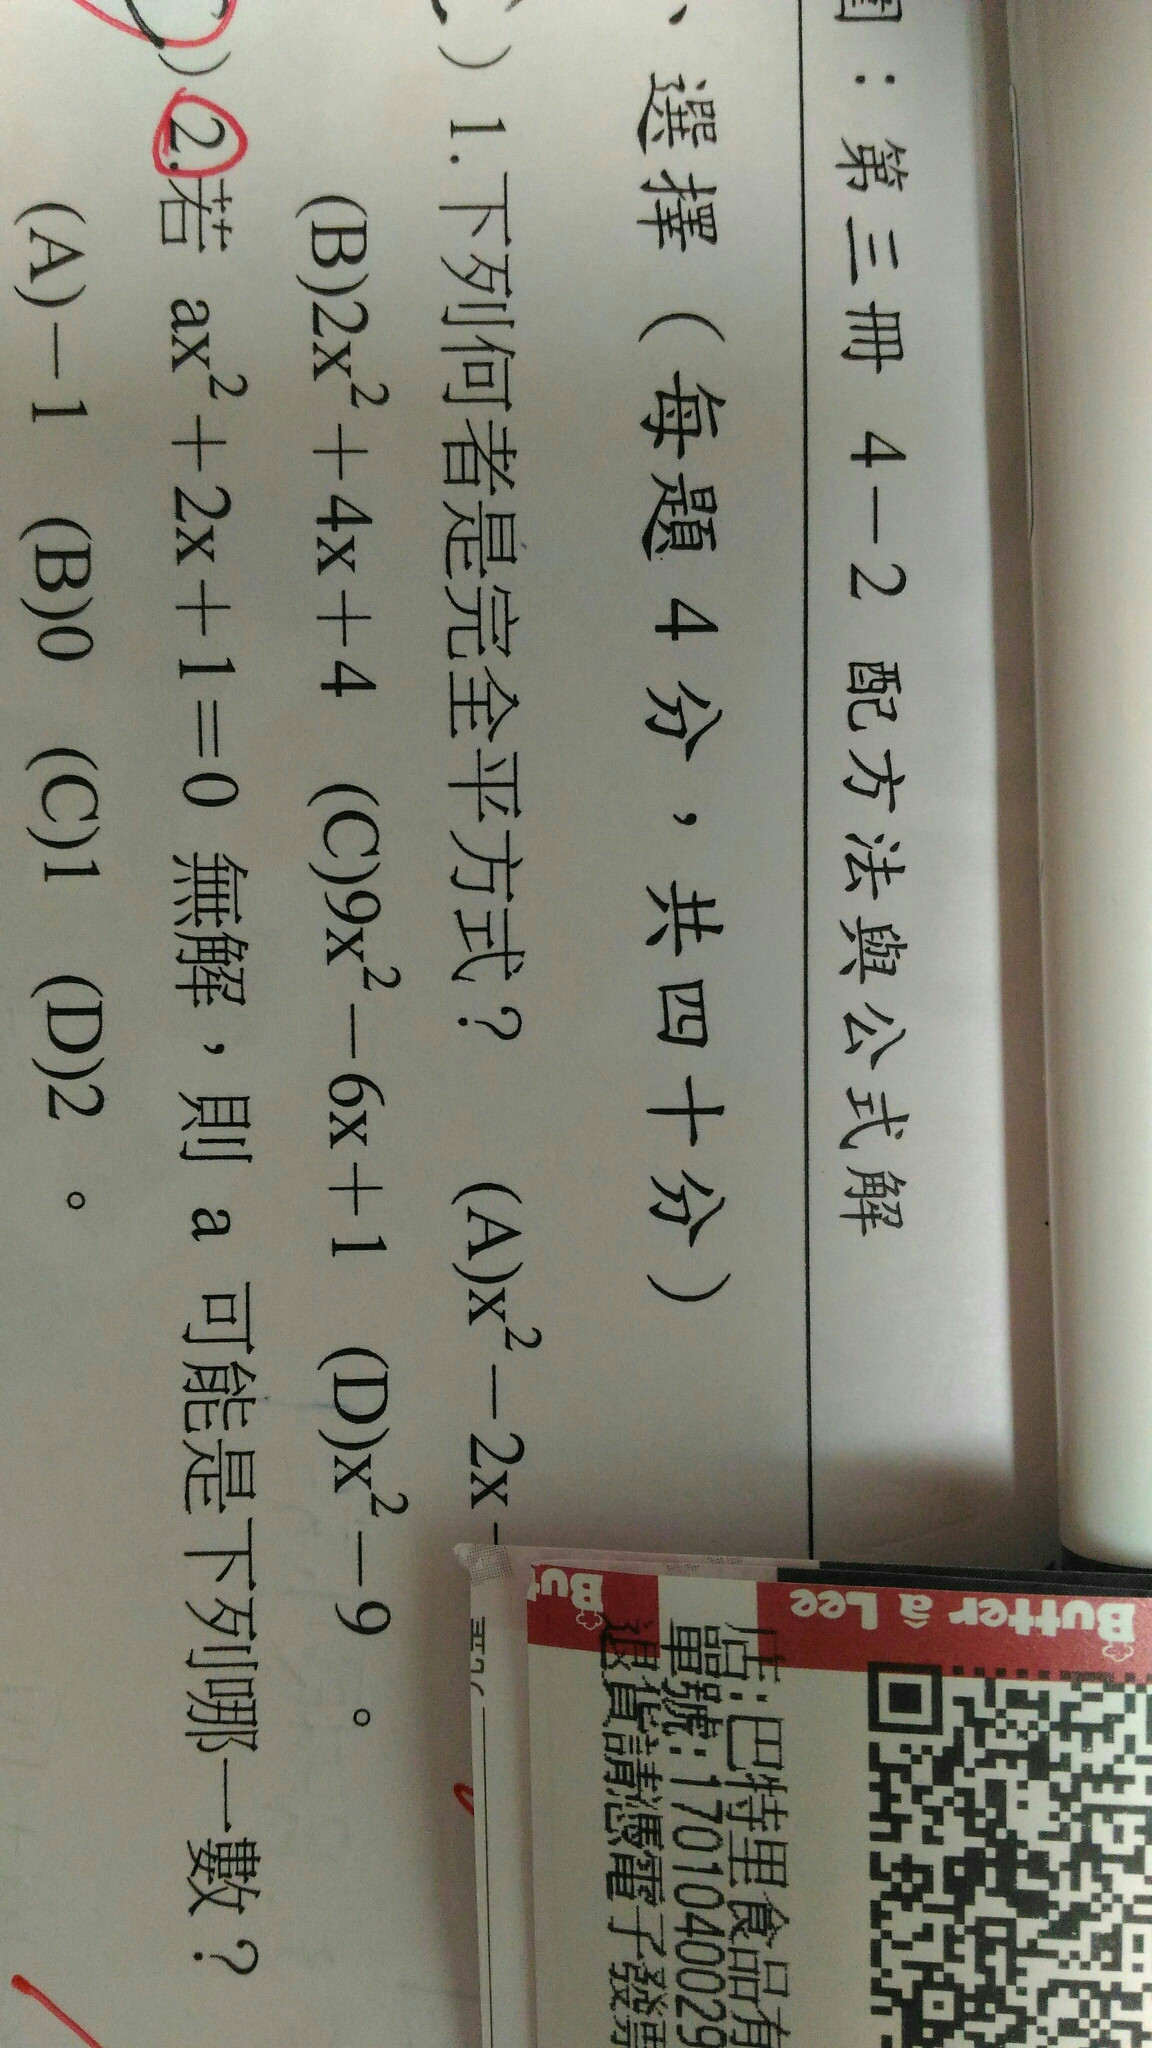 圍：第三冊 4－2 配方法與公式解
、選擇（每題 4 分，共四十分）
）1.下列何者是完全平方式？ (A)x²－2x
(B)2x²＋4x＋4 (C)9x²－6x＋1 (D)x²－9 。
）2.若 ax²＋2x＋1＝0 無解，則 a 可能是下列哪一數？
(A)－1 (B)0 (C)1 (D)2 。
Butter a Lee
But
店:巴特里食品有
單號:1701040029
退貨請憑電子發票